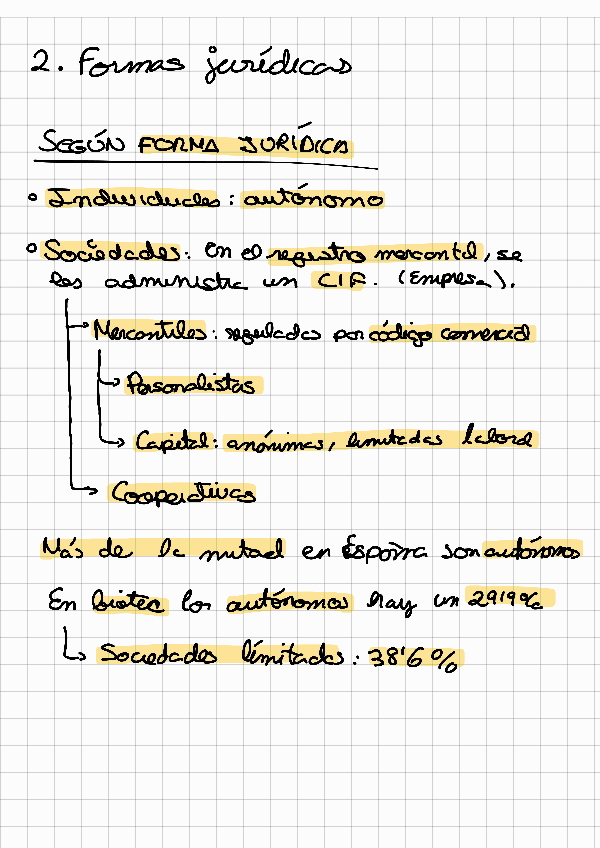 2. Formas jurídicas
SEGÚN FORMA JURÍDICA
Individuales: autónomo
Sociedades: En el registro mercantil, se
les administra un CIF. (Empresa).
Mercantiles: reguladas por código comercial
Personalistas
Capital: anónimas, limitadas laboral
Cooperativas
Más de la mitad en España son autónomos
En biotec los autónomos hay un 29'9%
Sociedades límitadas: 38'6%